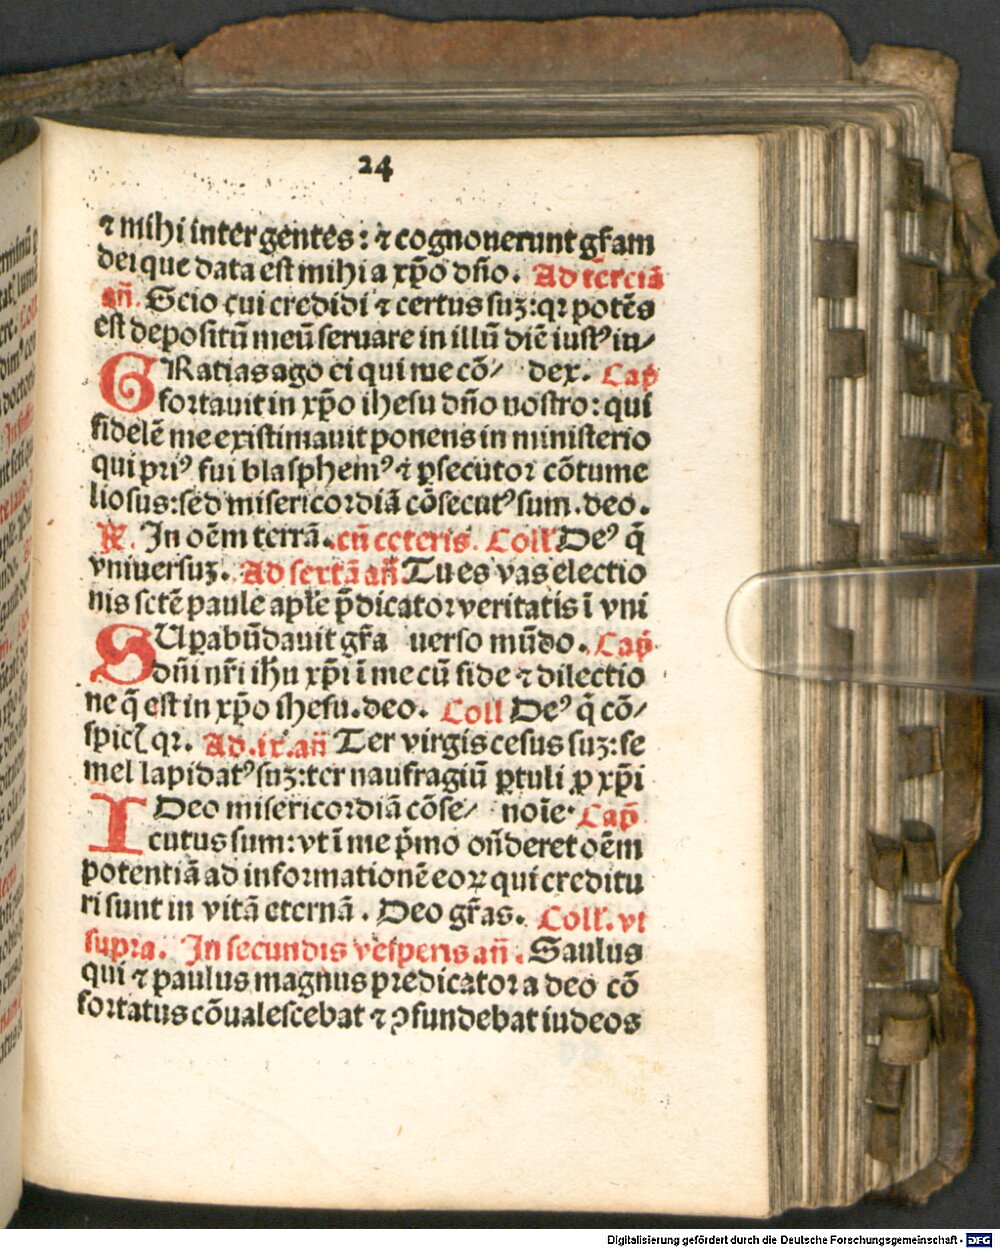 24
⁊ mihi inter gentes: ⁊ cognouerunt gr̃am
dei que data est mihi a xp̄o dño. Ad terciā
an̄. Scio cui credidi ⁊ certus suꝫ: qꝛ potēs
est depositū meū seruare in illū diē iustꝰ in⸗
GRatias ago ei qui me cō⸗ dex. Cap̄
fortauit in xp̄o ihesu dño nostro: qui
fidelē me existimauit ponens in ministerio
qui priꝰ fui blasphemꝰ ⁊ ꝑsecutor cōtume
liosus: sed misericordiā cōsecutꝰ sum. deo.
℟. In oēm terrā. cū ceteris. Coll Deꝰ q̄
vniuersuꝫ. Ad sextā an̄ Tu es vas electio
nis sctē paule apl̄e p̄dicator veritatis ī vni
SUꝑabūdauit gr̃a uerso mūdo. Cap̄
dñi nr̄i ih̄u xp̄i ī me cū fide ⁊ dilectio
ne q̄ est in xp̄o ihesu. deo. Coll Deꝰ q̄ cō⸗
spicꝭ qꝛ. Ad .ix. an̄ Ter virgis cesus suꝫ: se
mel lapidatꝰ suꝫ: ter naufragiū ꝑtuli ꝓ xp̄i
IDeo misericordiā cōse⸗ noīe. Cap̄
cutus sum: vt ī me p̄mo on̄deret oēm
potentiā ad informationē eoꝝ qui creditu
ri sunt in vitā eternā. Deo gr̄as. Coll. vt
supra. In secundis vesperis an̄. Saulus
qui ⁊ paulus magnus predicator a deo cō
fortatus cōualescebat ⁊ ꝯfundebat iudeos
Digitalisierung gefördert durch die Deutsche Forschungsgemeinschaft - DFG